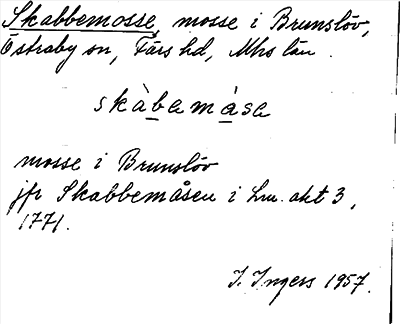 Skabbemosse, mosse i Brunslöv,
Östraby sn, Färs hd, Mhs län.
skàbemåsa
mosse i Brunslöv
jfr Skabbemåsen i Lm. akt 3,
1771.
I. Ingers 1957.